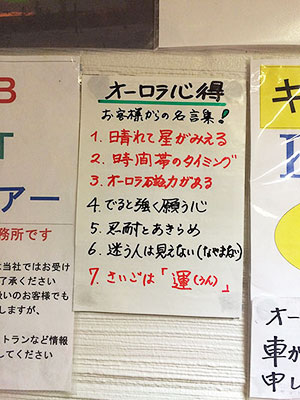 オーロラ心得
お客様からの名言集!
1. 晴れて星がみえる
2. 時間帯のタイミング
3. オーロラ磁力がある
4. でると強く願う心
5. 忍耐とあきらめ
6. 迷う人は見えない(なやまない)
7. さいごは「運(うん)」
B
T
アー
務所です
は当社ではお受け
了承ください
扱いのお客様でも
しますが、
トランなど情報
してください
キ
オー
車が
申し